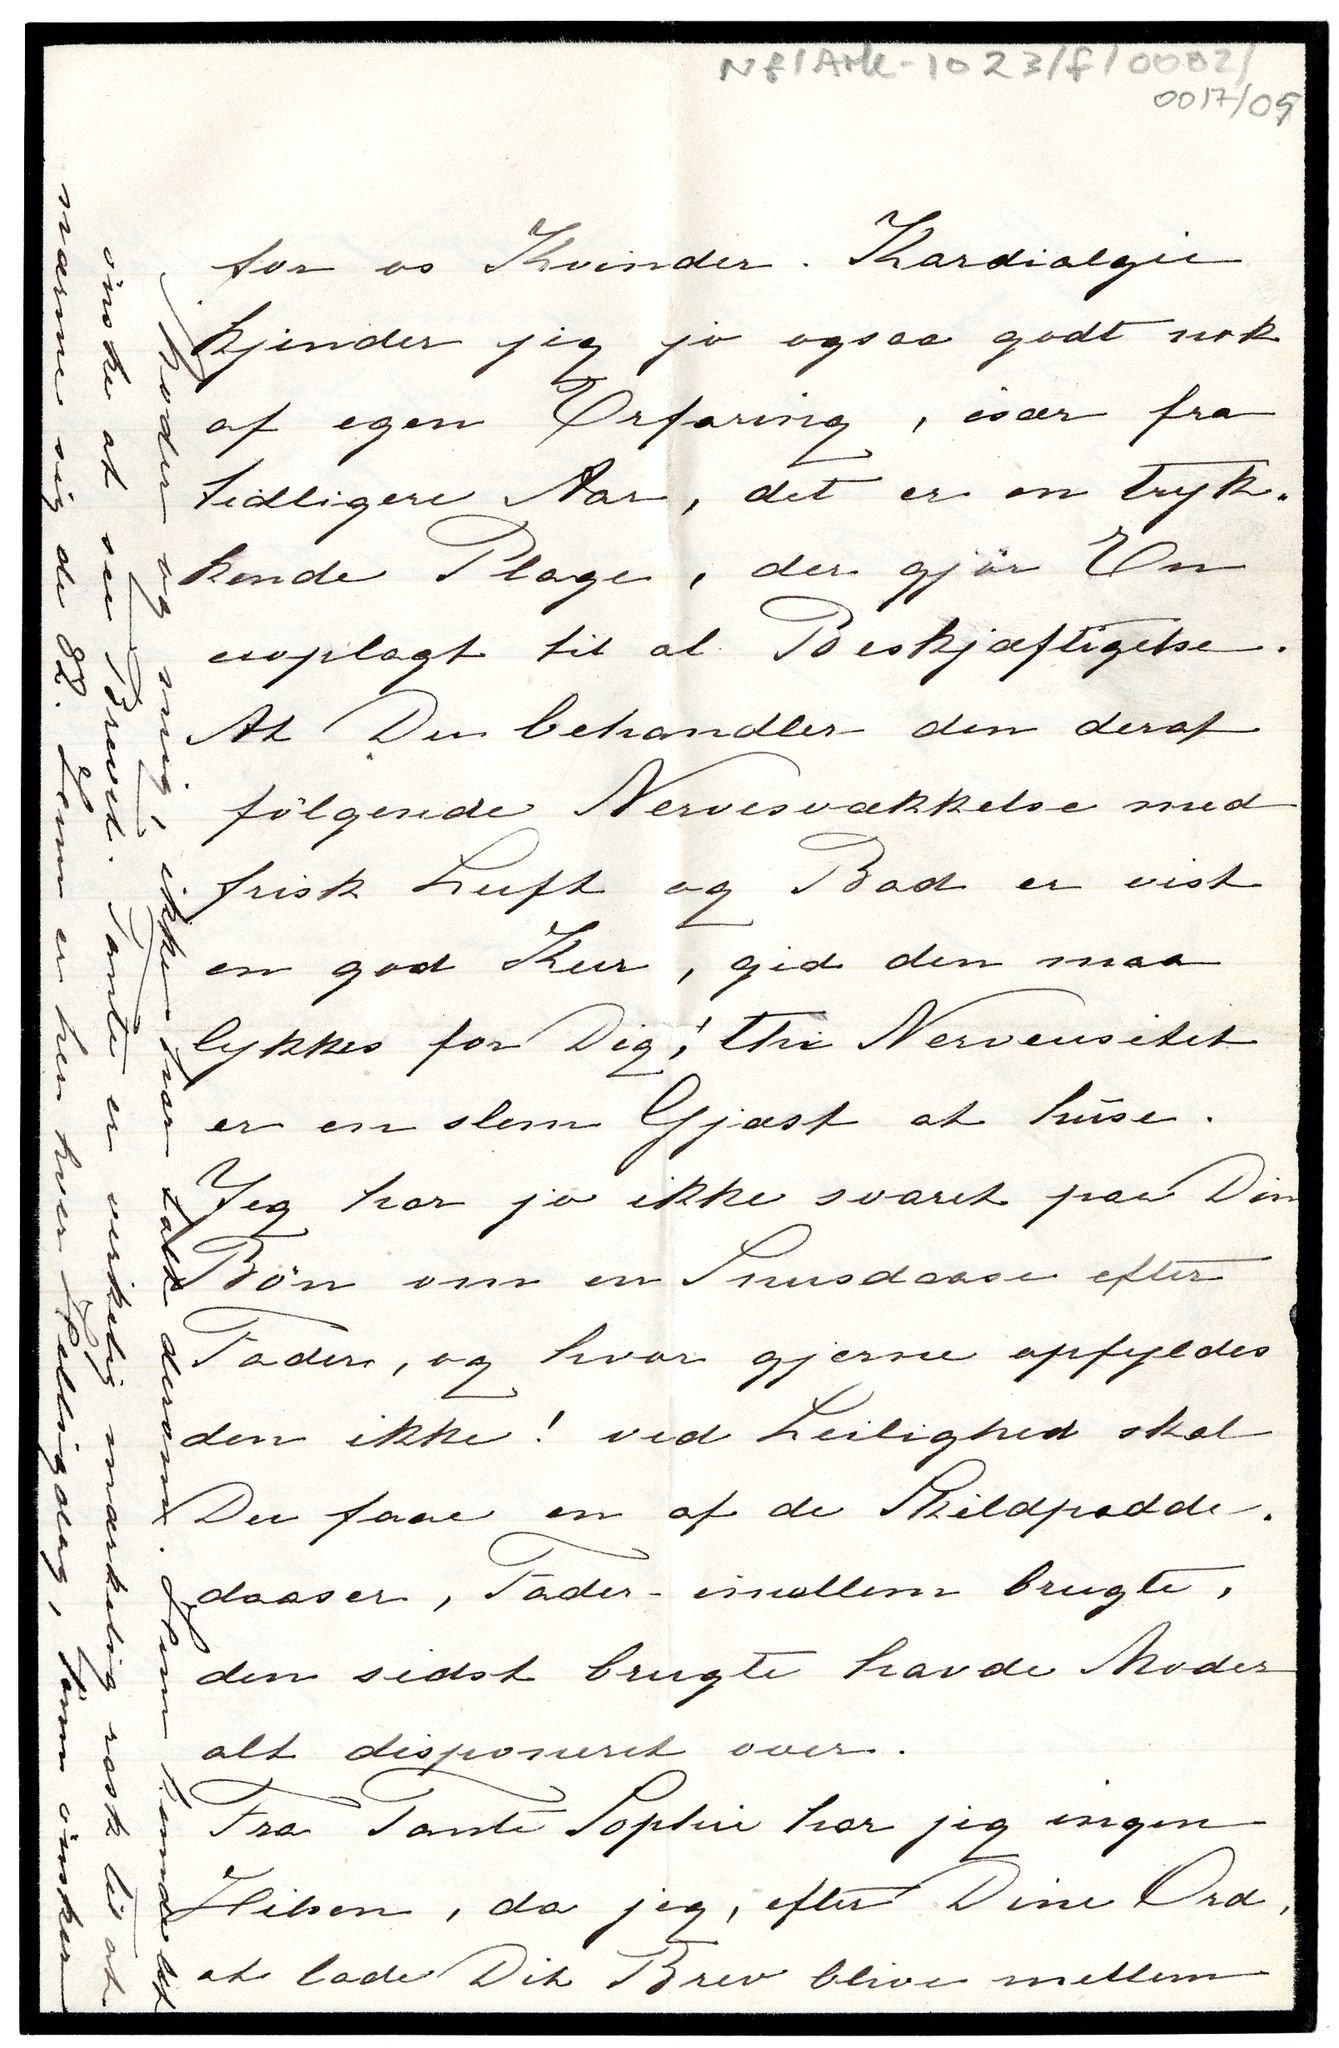 NF/Ark-1023/f/0002/
0017/05
for os Kvinder. Kardialgie
kjender jeg jo ogsaa godt nok
af egen Erfaring, især fra
tidligere Aar, det er en tryk-
kende Plage, der gjör En
uoplagt til al Beskjæftigelse.
At Du behandler den deraf
fölgende Nervesvækkelse med
frisk Luft og Bad er vist
en god Kur, gid den maa
lykkes for Dig! thi Nerveusitet
er en slem Gjæst at huse.
Jeg har jo ikke svaret paa Din
Bön om en Snusdaase efter
Fader, og hvor gjerne opfyldes
den ikke! ved Leilighed skal
Du faae en af de Skildpadde-
daaser, Fader imellem brugte,
den sidst brugte havde Moder
alt disponeret over.
Fra Tante Sophie har jeg ingen
Hilsen, da jeg, efter Dine Ord,
at lade Dit Brev blive mellem
Moder og mig, ikke har talt derom. Hun kunde let
önske at see Brevet. Tante er virkelig mærkelig rask til at
nærme sig de 82. Hun er hen hver Helligdag, som önsker